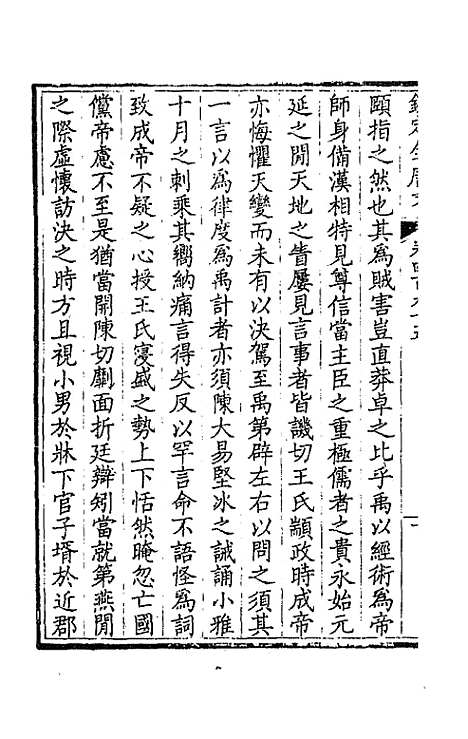 欽定全唐文
卷四百九十五
頤指之然也其為賊害豈直莽卓之比乎禹以經術為帝
師身備漢相特見尊信當主臣之重極儒者之貴永始元
延之間天地之眚屢見言事者皆譏切王氏顓政時成帝
亦悔懼天變而未有以決駕至禹第辟左右以問之須其
一言以為律度為禹計者亦須陳大易堅冰之誡誦小雅
十月之刺乘其嚮納痛言得失反以罕言命不語怪為詞
致成帝不疑之心授王氏寖盛之勢上下恬然晻忽亡國
儻帝慮不至是猶當開陳切劘面折廷辯矧當就第燕閒
之際虛懷訪決之時方且視小男於牀下官子壻於近郡